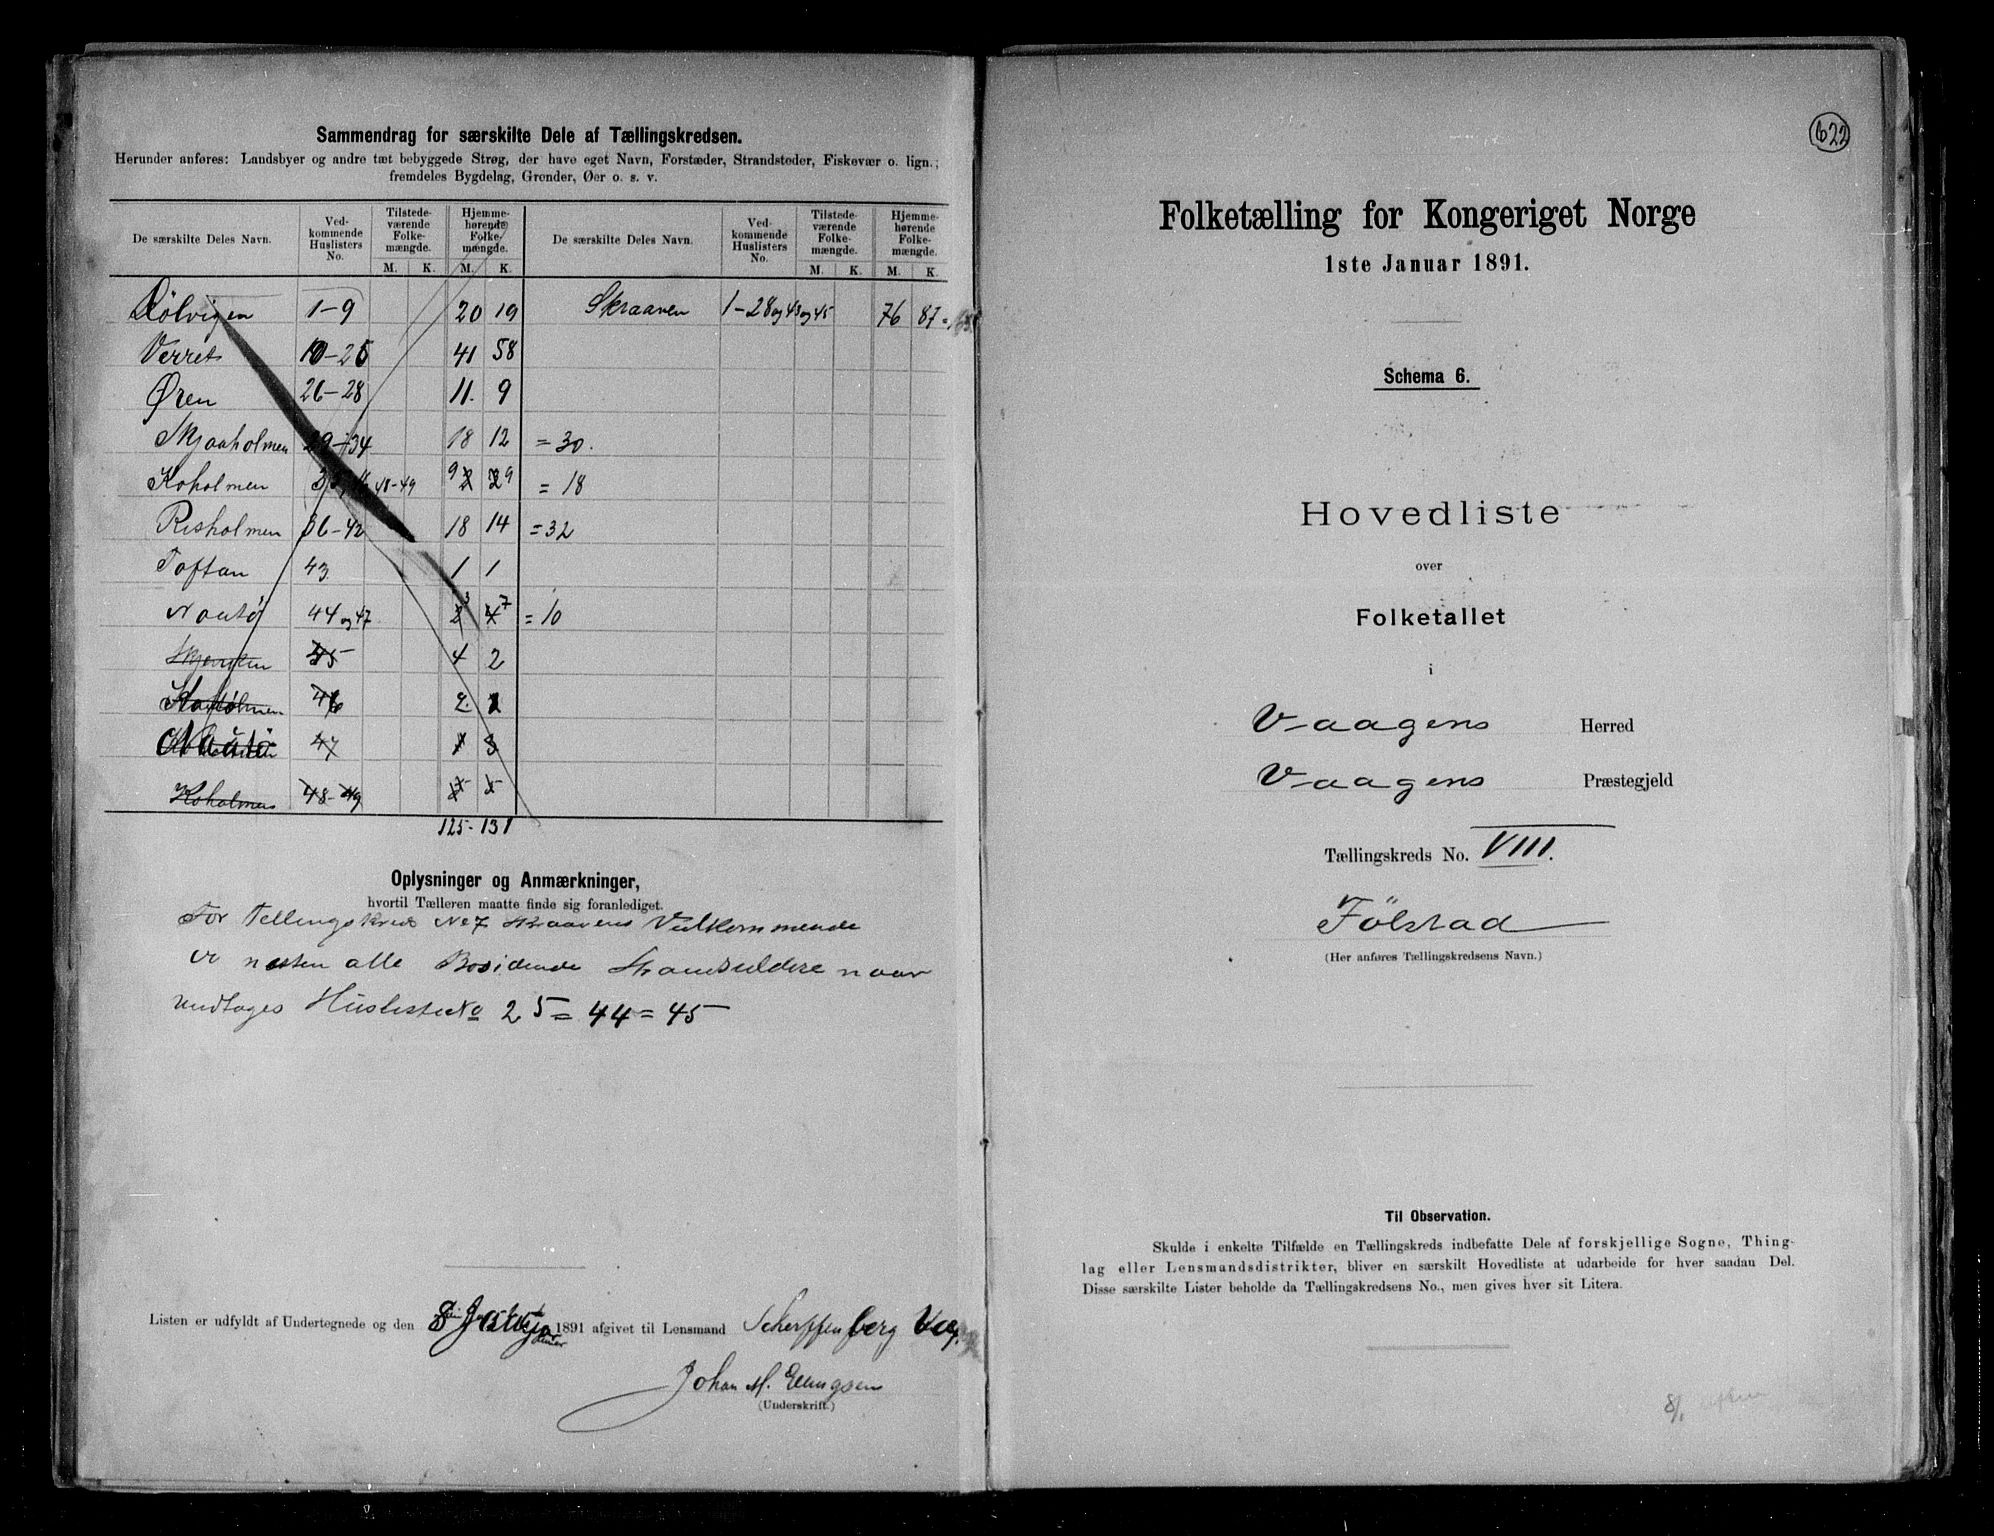 Sammendrag for særskilte Dele af Tællingskredsen.
Herunder anføres: Landsbyer og andre tæt bebyggede Strøg, der have eget Navn, Forstæder, Strandsteder, Fiskevær o. lign.;
fremdeles Bygdelag, Grender, Øer o. s. v.
De særskilte Deles Navn. Ved-kommende Huslisters No. Tilstede-værende Folke-mængde. Hjemme-hørende Folke-mængde. De særskilte Deles Navn. Ved-kommende Huslisters No. Tilstede-værende Folke-mængde. Hjemme-hørende Folke-mængde.
M. K. M. K. M. K. M. K.
1-9 20 19 Skraaven 1-28 og 43 og 45 76 87
Verret 10-25 41 58
Øren 26-28 11. 9
Skjaaholmen 29-34 18 12 = 30.
Koholmen 48-49 9 9 = 18
Risholmen 36-42 18 14 = 32
Toftan 43 1 1
44 og 47 3 7 = 10
45 4 2
46 2
47
Koholmen 48-49
125 - 131
Oplysninger og Anmærkninger,
hvortil Tælleren maatte finde sig foranlediget.
For Tellingskreds No 7 Skraavens Vedkommende
er næsten alle Bosidende Strandsiddere naar
undtages Husliste No 25 = 44 = 45
Listen er udfyldt af Undertegnede og den 8 1891 afgivet til Lensmand Scherffenberg
Johan M. Ellingsen
(Underskrift.)
622
Folketælling for Kongeriget Norge
1ste Januar 1891.
Schema 6.
Hovedliste
over
Folketallet
i
Vaagens Herred
Vaagens Præstegjeld
Tællingskreds No. VIII.
Fölstad
(Her anføres Tællingskredsens Navn.)
Til Observation.
Skulde i enkelte Tilfælde en Tællingskreds indbefatte Dele af forskjellige Sogne, Thing-
lag eller Lensmandsdistrikter, bliver en særskilt Hovedliste at udarbeide for hver saadan Del.
Disse særskilte Lister beholde da Tællingskredsens No., men gives hver sit Litera.
8/1